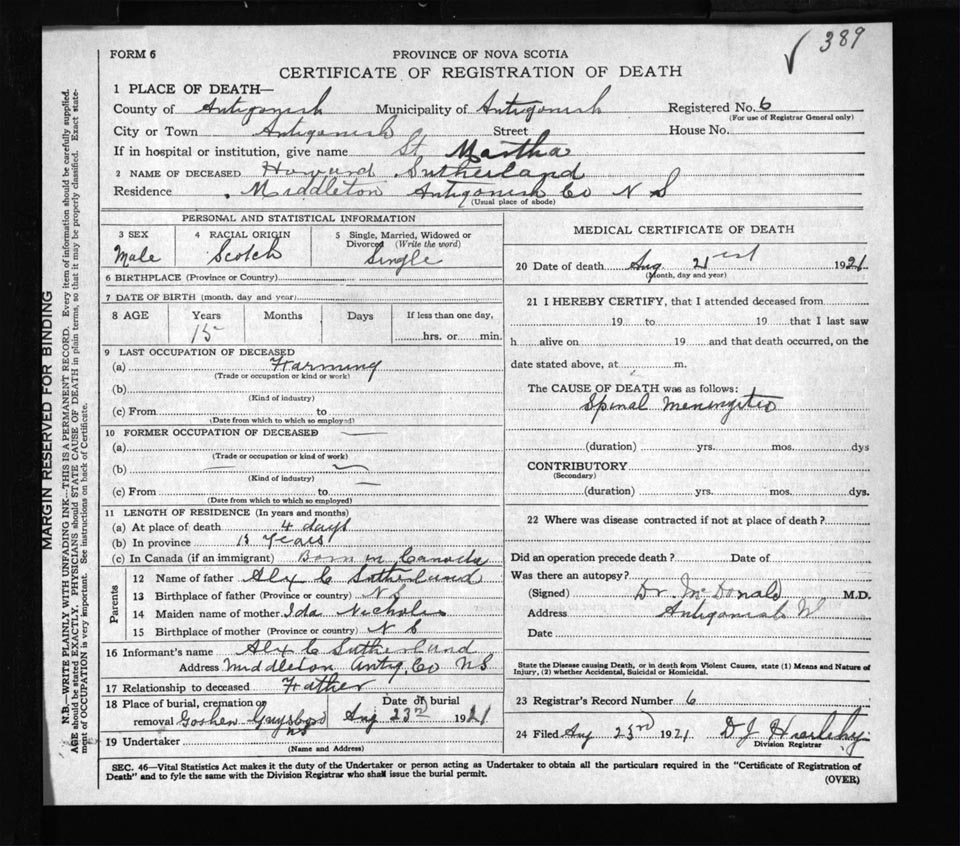 389
FORM 6
PROVINCE OF NOVA SCOTIA
CERTIFICATE OF REGISTRATION OF DEATH
1 PLACE OF DEATH—
County of Antigonish Municipality of Antigonish Registered No. 6
(For use of Registrar General only)
City or Town Antigonish Street House No.
If in hospital or institution, give name St Martha
2 NAME OF DECEASED Howard Sutherland
Residence Middleton Antigonish Co N S
(Usual place of abode)
PERSONAL AND STATISTICAL INFORMATION
3 SEX Male
4 RACIAL ORIGIN Scotch
5 Single, Married, Widowed or Divorced (Write the word) Single
6 BIRTHPLACE (Province or Country)
7 DATE OF BIRTH (month, day and year)
8 AGE Years Months Days If less than one day,
15 hrs. or min.
9 LAST OCCUPATION OF DECEASED
(a) Farming
(Trade or occupation or kind or work)
(b)
(Kind of industry)
(c) From to
(Date from which to which so employed)
10 FORMER OCCUPATION OF DECEASED
(a)
(Trade or occupation or kind of work)
(b)
(Kind of industry)
(c) From to
(Date from which to which so employed)
11 LENGTH OF RESIDENCE (In years and months)
(a) At place of death 4 days
(b) In province 15 years
(c) In Canada (if an immigrant) Born in Canada
Parents
12 Name of father Alx C Sutherland
13 Birthplace of father (Province or country) N S
14 Maiden name of mother Ida Nichols
15 Birthplace of mother (Province or country) N S
16 Informant's name Alx C Sutherland
Address Middleton Antig. Co NS
17 Relationship to deceased Father
18 Place of burial, cremation or removal Goshen NS
Date of burial Aug 23rd 1921
19 Undertaker
(Name and Address)
MEDICAL CERTIFICATE OF DEATH
20 Date of death Aug 21st 1921
(Month, day and year)
21 I HEREBY CERTIFY, that I attended deceased from
19 to 19 that I last saw
h alive on 19 and that death occurred, on the
date stated above, at m.
The CAUSE OF DEATH was as follows:
Spinal Meningitis
(duration) yrs. mos. dys
CONTRIBUTORY
(Secondary)
(duration) yrs. mos. dys.
22 Where was disease contracted if not at place of death?
Did an operation precede death? Date of
Was there an autopsy?
(Signed) Dr. McDonald M.D.
Address Antigonish
Date
State the Disease causing Death, or in death from Violent Causes, state (1) Means and Nature of
Injury, (2) whether Accidental, Suicidal or Homicidal.
23 Registrar's Record Number 6
24 Filed Aug 23rd 1921 D J
Division Registrar
SEC. 46—Vital Statistics Act makes it the duty of the Undertaker or person acting as Undertaker to obtain all the particulars required in the "Certificate of Registration of
Death" and to fyle the same with the Division Registrar who shall issue the burial permit.
(OVER)
MARGIN RESERVED FOR BINDING
N.B.—WRITE PLAINLY WITH UNFADING INK—THIS IS A PERMANENT RECORD. Every item of information should be carefully supplied.
AGE should be stated EXACTLY. PHYSICIANS should STATE CAUSE OF DEATH in plain terms, so that it may be properly classified. Exact state-
ment of OCCUPATION is very important. See instructions on back of Certificate.